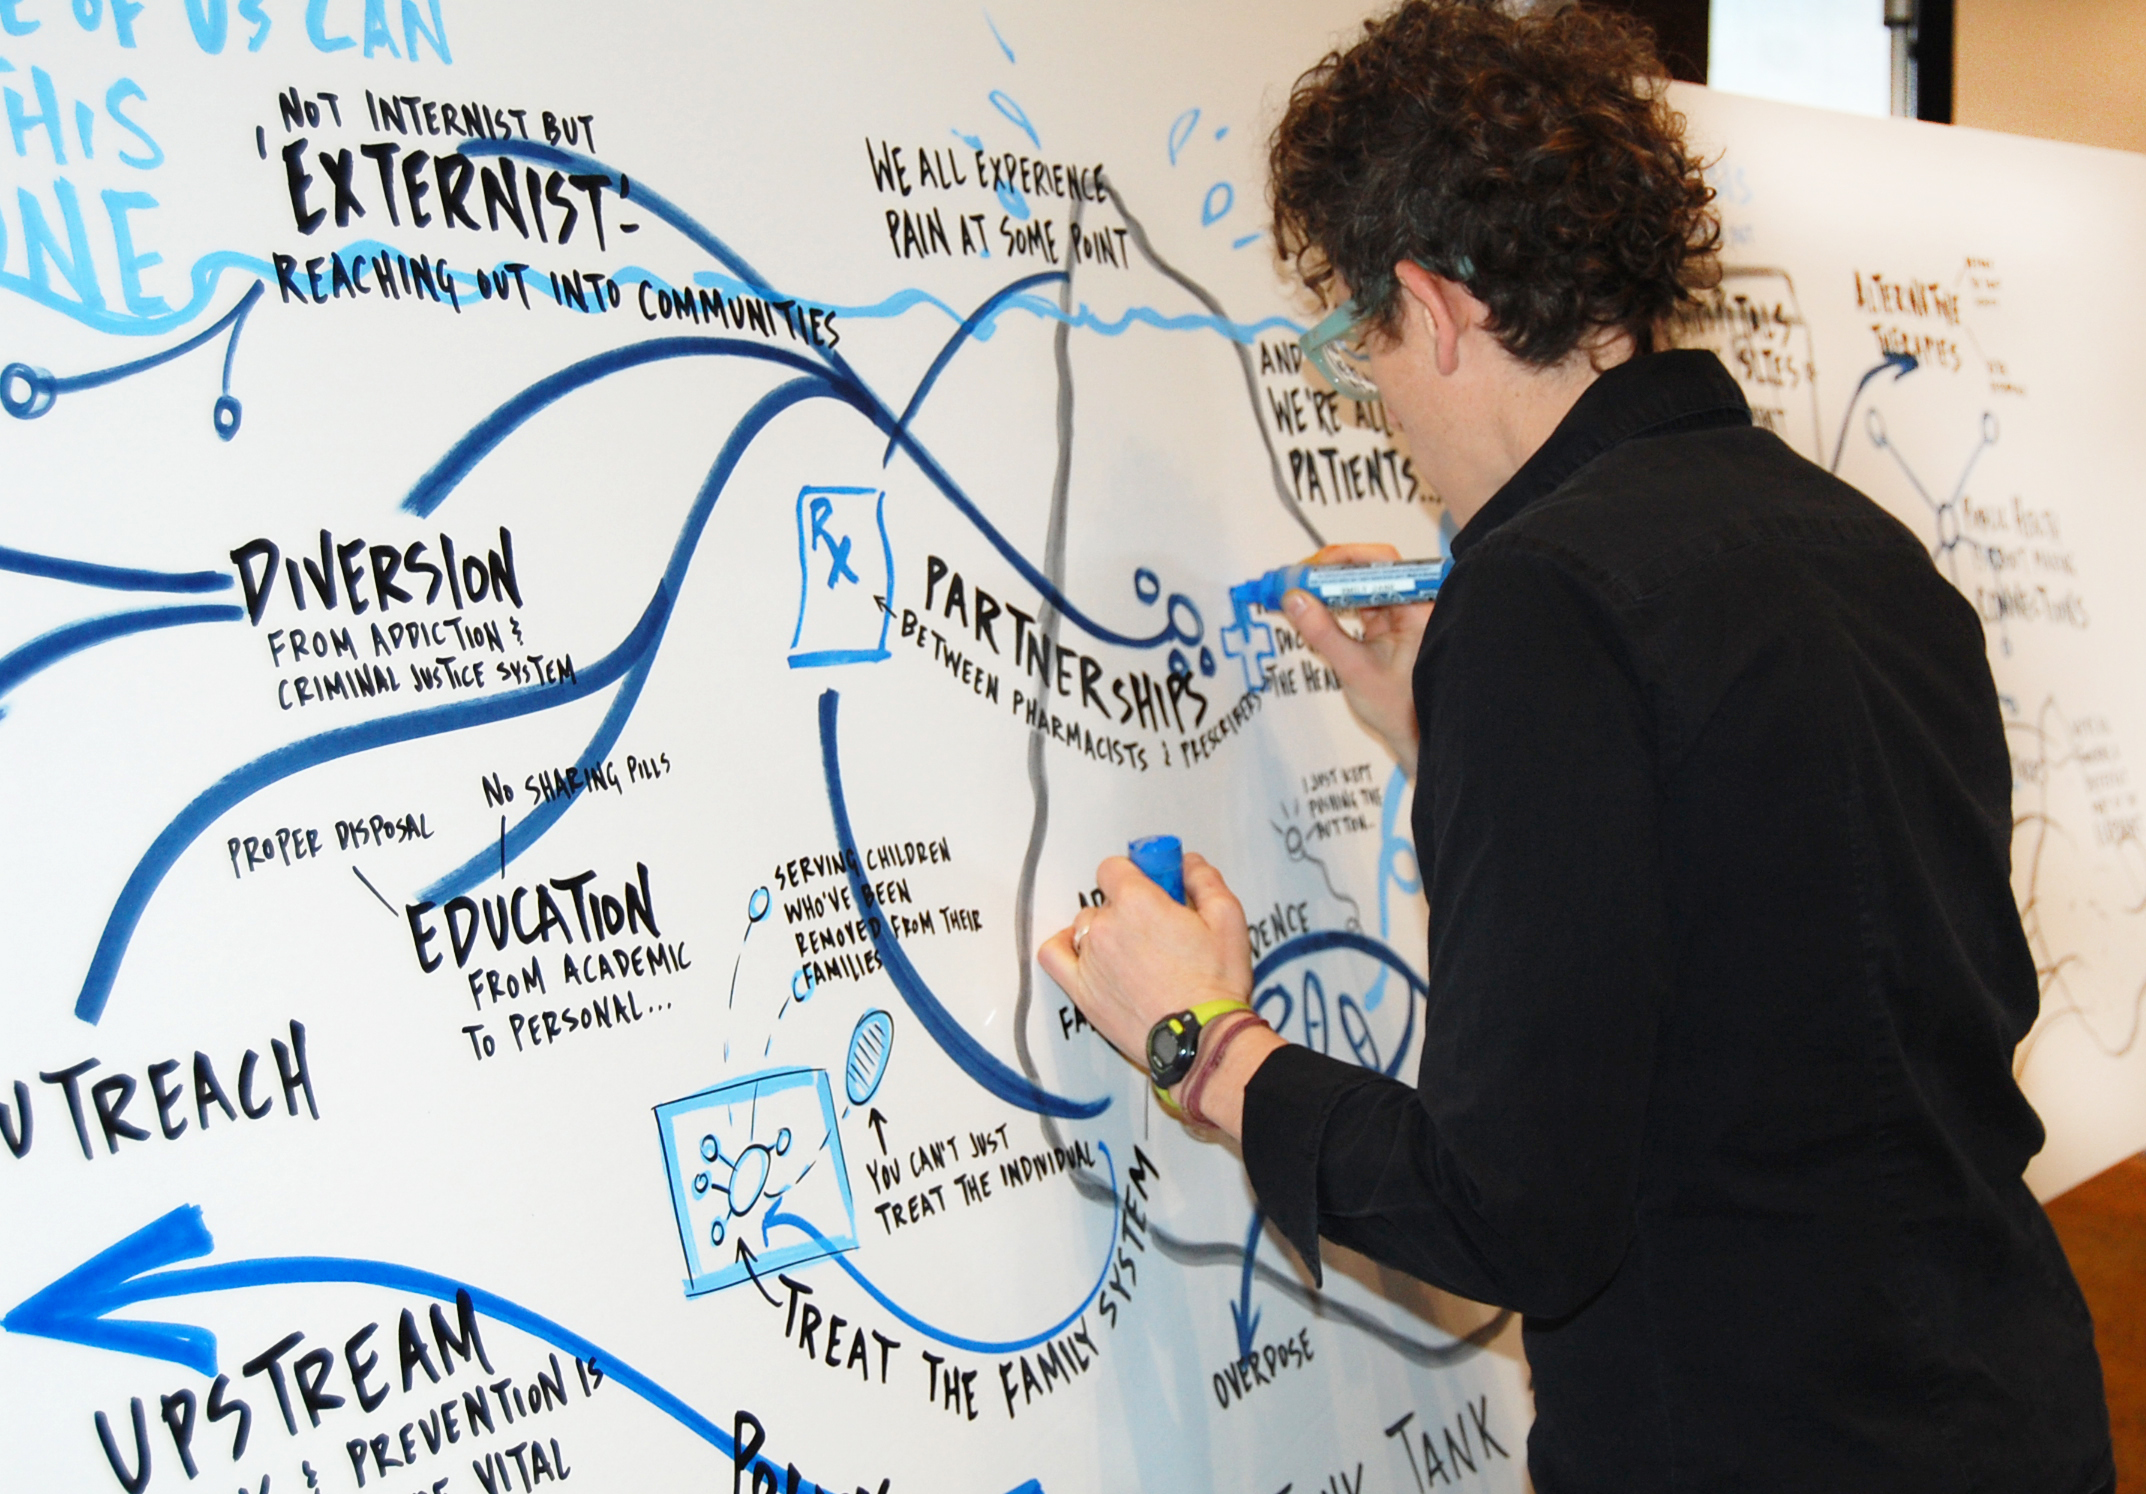 E OF US CAN
THIS
ONE
NOT INTERNIST BUT
'EXTERNIST'-
REACHING OUT INTO COMMUNITIES
WE ALL EXPERIENCE
PAIN AT SOME POINT
AND
WE'RE ALL
PATIENTS...
ALTERNATIVE
THERAPIES
CONNECTIONS
DIVERSION
FROM ADDICTION &
CRIMINAL JUSTICE SYSTEM
RX
PARTNERSHIPS
BETWEEN PHARMACISTS & PRESCRIBERS
THE HEA
NO SHARING PILLS
PROPER DISPOSAL
EDUCATION
FROM ACADEMIC
TO PERSONAL...
I JUST KEPT
PUSHING THE
BUTTON...
SERVING CHILDREN
WHO'VE BEEN
REMOVED FROM THEIR
FAMILIES
DENCE
FA
UTREACH
YOU CAN'T JUST
TREAT THE INDIVIDUAL
TREAT THE FAMILY SYSTEM
OVERDOSE
UPSTREAM
& PREVENTION IS
VITAL
TANK